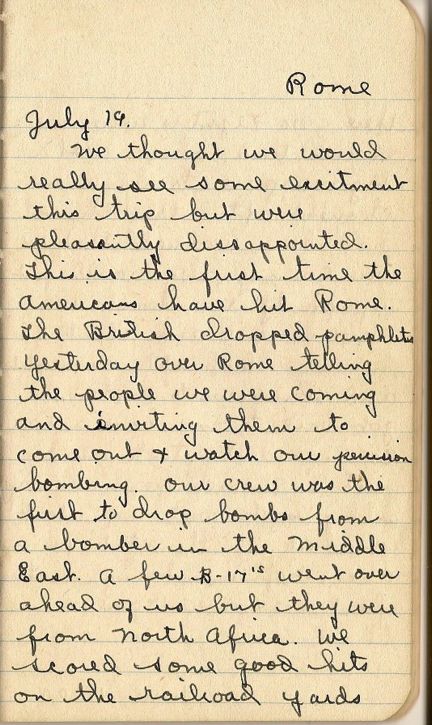 Rome
July 19.
We thought we would
really see some exsitment
this trip but were
pleasantly dissappointed.
This is the first time the
americans have hit Rome.
The British dropped pamphlets
yesterday over Rome telling
the people we were coming
and inviting them to
come out + watch our precision
bombing. Our crew was the
first to drop bombs from
a bomber in the Middle
East. A few B-17's went over
ahead of us but they were
from North Africa. We
scored some good hits
on the railroad yards